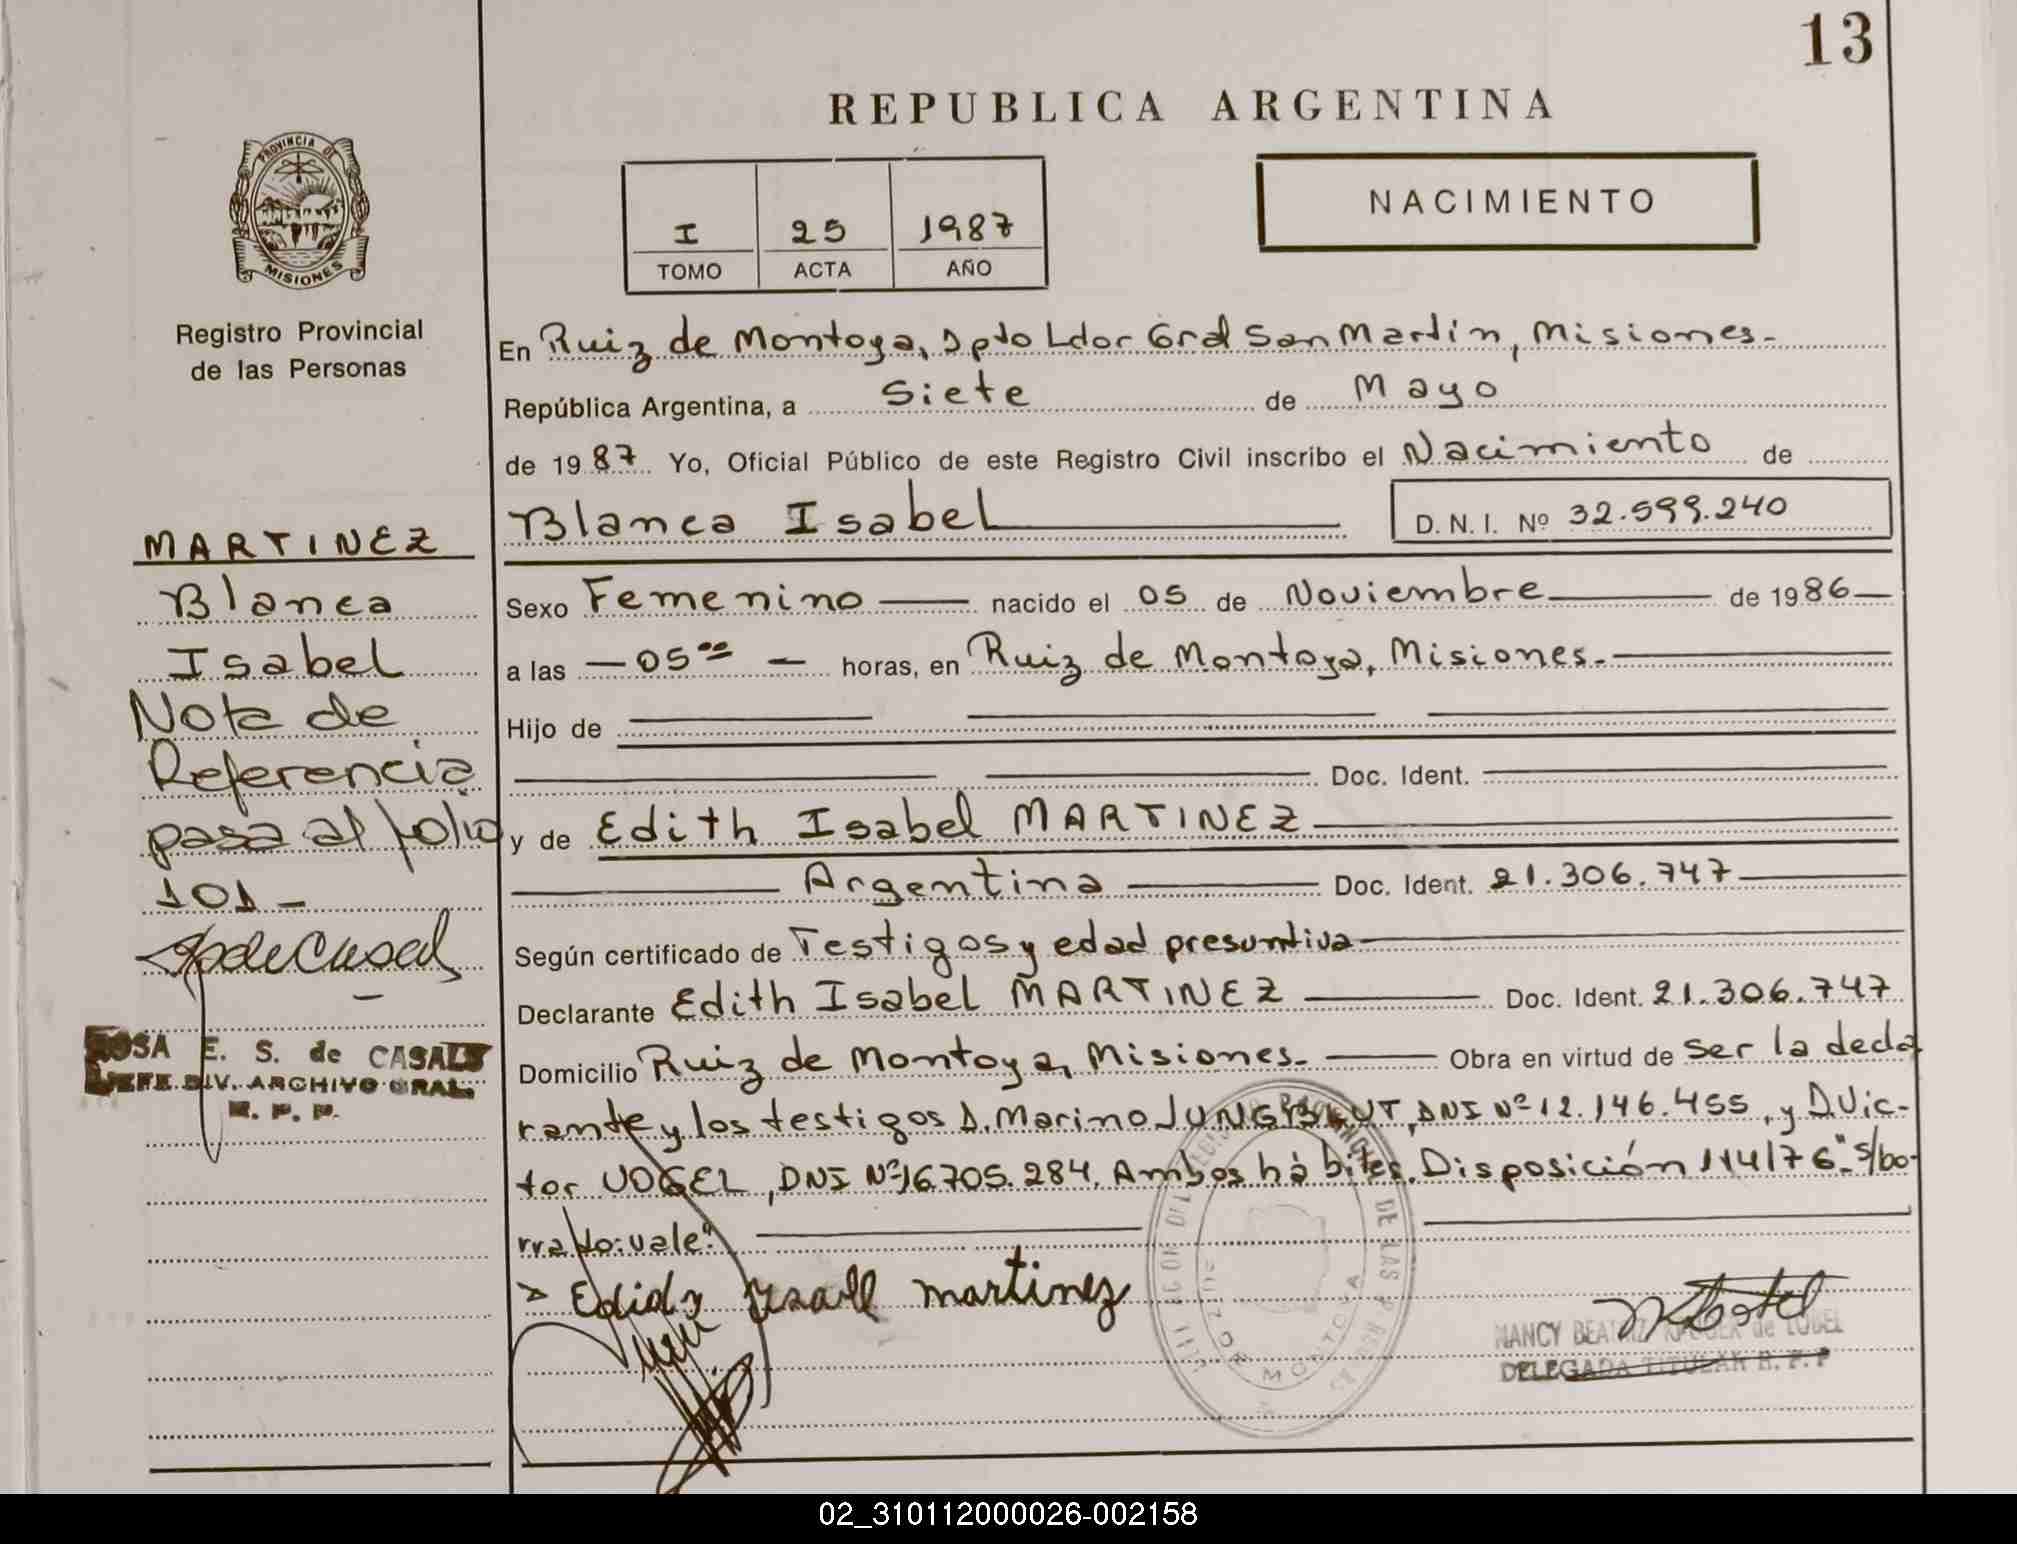 13
REPUBLICA ARGENTINA
PROVINCIA DE
MISIONES
Registro Provincial
de las Personas
I 25 1987
TOMO ACTA AÑO
NACIMIENTO
En Ruiz de Montoya, Dpto Ldor Gral San Martin, Misiones.-
República Argentina, a Siete de Mayo
de 1987 Yo, Oficial Público de este Registro Civil inscribo el Nacimiento de
Blanca Isabel D. N. I. Nº 32.599.240
MARTINEZ
Blanca
Isabel
Nota de
Referencia
pasa al folio
101-
ROSA E. S. de CASALS
JEFE DIV. ARCHIVO GRAL.
R. P. P.
Sexo Femenino nacido el 05 de Noviembre de 1986
a las 05⁰⁰ horas, en Ruiz de Montoya, Misiones.
Hijo de
Doc. Ident.
y de Edith Isabel MARTINEZ
Argentina Doc. Ident. 21.306.747
Según certificado de Testigos y edad presuntiva
Declarante Edith Isabel MARTINEZ Doc. Ident. 21.306.747
Domicilio Ruiz de Montoya, Misiones. Obra en virtud de ser la decla
rante y los testigos D. Marino JUNGBLUT, DNI Nº 12.146.455, y D. Vic-
tor VOGEL, DNI Nº 16.705.284. Ambos hábiles. Disposición 114/76 "s/bo-
rrado: vale".
martinez
NANCY BEATRIZ de
DELEGADA TITULAR R. P. P
02_310112000026-002158